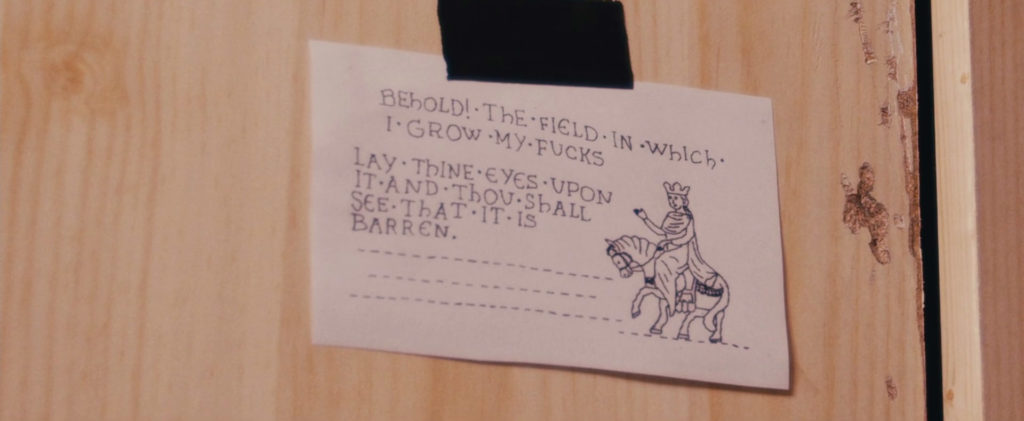 BEHOLD!·THE·FIELD·IN·WHICH·
I·GROW·MY·FUCKS
LAY·THINE·EYES·UPON
IT·AND·THOU·SHALL
SEE·THAT·IT·IS
BARREN.